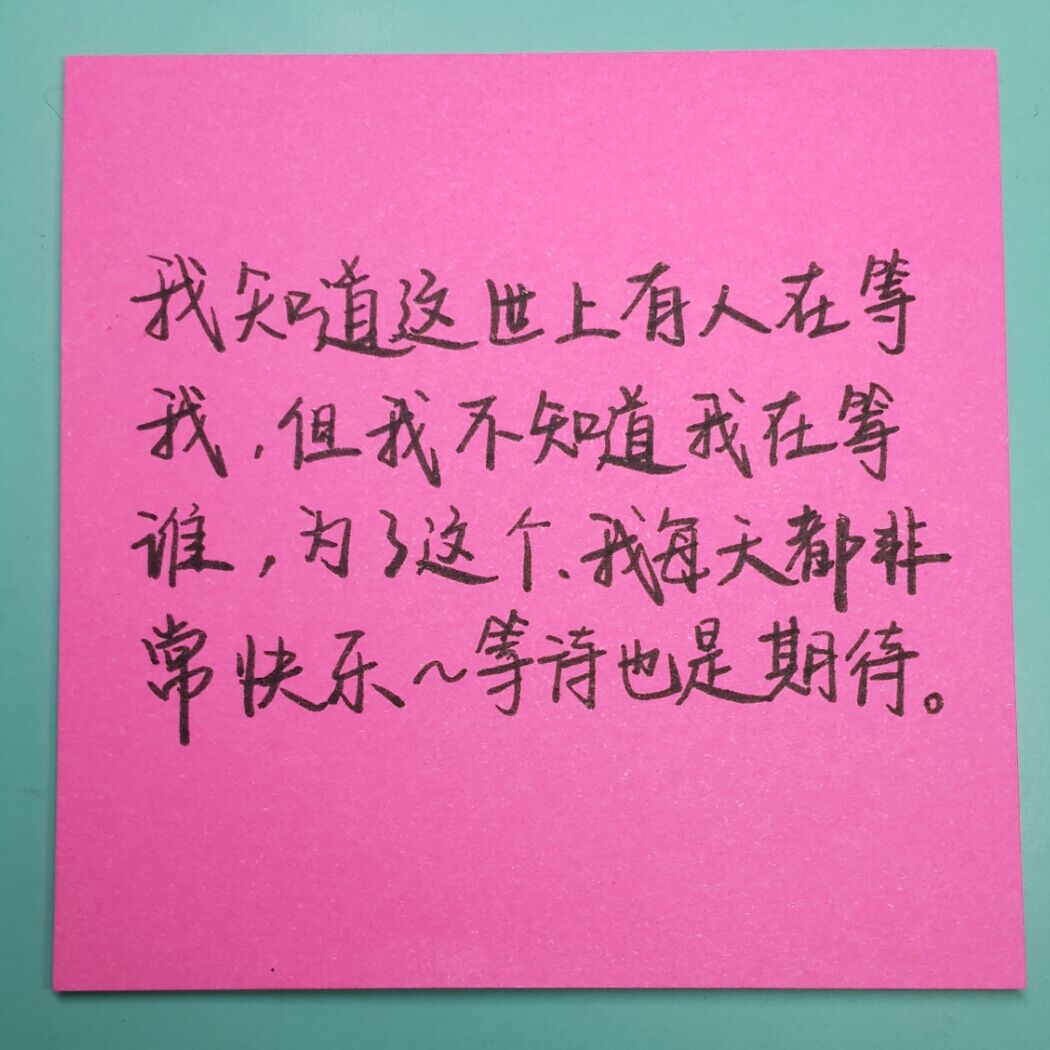 我知道这世上有人在等
我,但我不知道我在等
谁,为了这个、我每天都非
常快乐~等待也是期待。